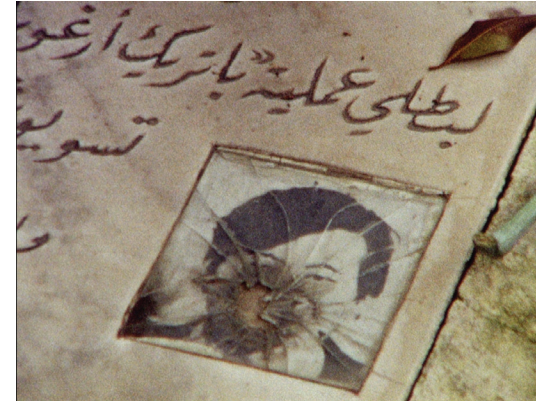 لبطلي عملية «باتريك أرغو
تسويو